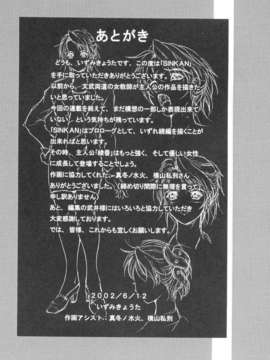 あとがき
どうも、いずみきょうたです。この度は「SINKAN」
を手に取っていただきありがとうございます。
以前から、文武両道の女教師が主人公の作品を描きた
いと思っていました。
今回の連載を終えて、まだ構想の一部しか表現出来て
いない、という気持ちが残っています。
「SINKAN」はプロローグとして、いずれ続編を描くことが
出来ればと思います。
その時、主人公「綾香」はもっと強く、そして優しい女性
に成長して登場することでしょう。
作画に協力してくれた、真冬ノ水火、横山私剣さん
ありがとうございました。（締め切り間際に無理を言って
申し訳ありません）
あと、編集の武井様にはいろいろと協力していただき
大変感謝しております。
では、皆様、これからも宜しくお願いします。
２００２／６／１２
いずみきょうた
作画アシスト：真冬ノ水火、横山私剣